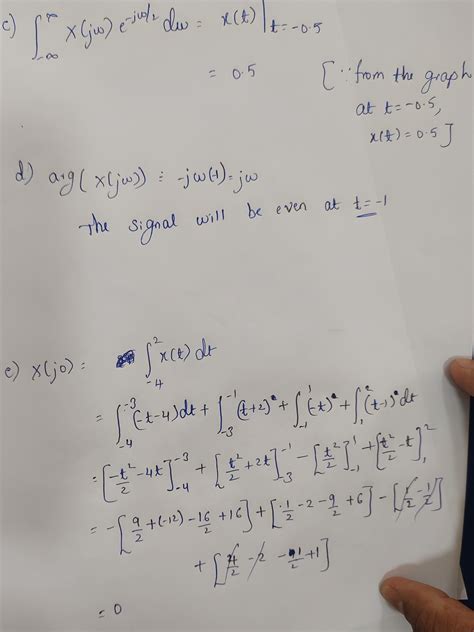 c) ∫_{-∞}^{∞} X(jω) e^{-jω/2} dω = x(t) |_{t=-0.5}
= 0.5 [∵ from the graph
at t=-0.5,
x(t) = 0.5]
d) arg(X(jω)) = -jω(-1) = jω
The signal will be even at t=-1
e) X(j0) = ∫_{-4}^{2} x(t) dt
= ∫_{-4}^{-3} (-t-4)dt + ∫_{-3}^{-1} (t+2) + ∫_{-1}^{1} (-t) + ∫_{1}^{2} (t-1) dt
= [-t²/2 - 4t]_{-4}^{-3} + [t²/2 + 2t]_{-3}^{-1} - [t²/2]_{-1}^{1} + [t²/2 - t]_{1}^{2}
= -[9/2 + (-12) - 16/2 + 16] + [1/2 - 2 - 9/2 + 6] - [1/2 - 1/2]
+ [4/2 - 2 - 1/2 + 1]
= 0